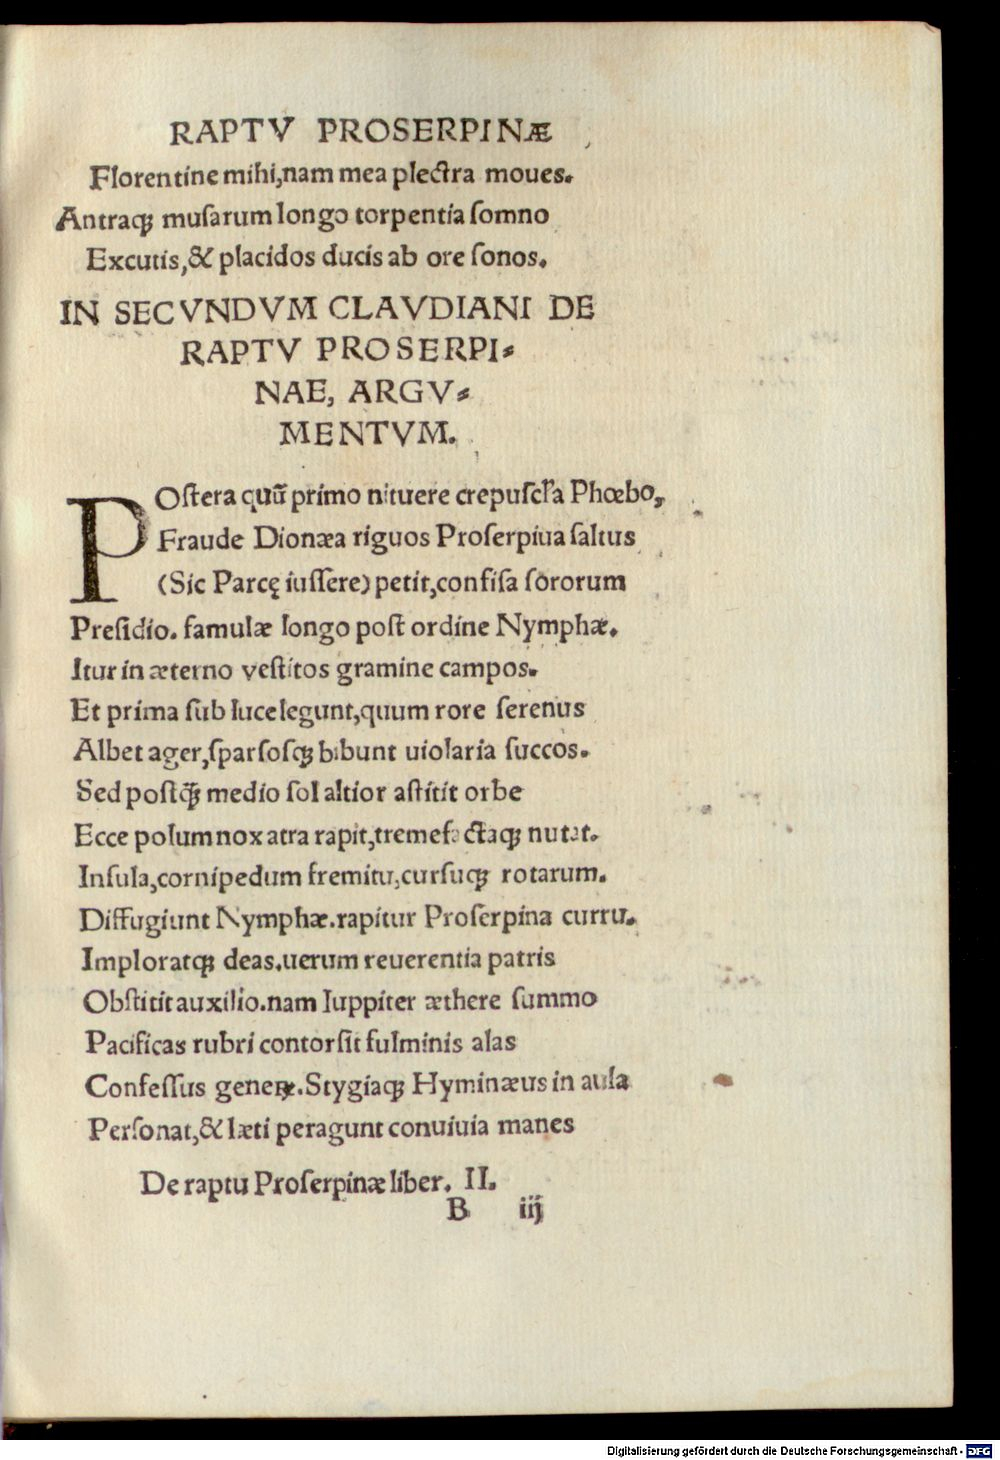 RAPTV PROSERPINÆ
Florentine mihi,nam mea plectra moues.
Antraqꝫ muſarum longo torpentia ſomno
Excutis,& placidos ducis ab ore ſonos.
IN SECVNDVM CLAVDIANI DE
RAPTV PROSERPI⸗
NAE, ARGV⸗
MENTVM.
POſtera quū primo nituere crepuſcl'a Phœbo,
Fraude Dionæa riguos Proſerpiua ſaltus
(Sic Parcę iuſſere) petit,confiſa ſororum
Preſidio. famulæ longo poſt ordine Nymphæ.
Itur in æterno veſtitos gramine campos.
Et prima ſub luce legunt,quum rore ſerenus
Albet ager,ſparſoſqꝫ bibunt uiolaria ſuccos.
Sed poſtꝙ̃ medio ſol altior aſtitit orbe
Ecce polum nox atra rapit,tremefactaqꝫ nutat.
Inſula,cornipedum fremitu,curſuqꝫ rotarum.
Diffugiunt Nymphæ.rapitur Proſerpina curru.
Imploratqꝫ deas.uerum reuerentia patris
Obſtitit auxilio.nam Iuppiter æthere ſummo
Pacificas rubri contorſit fulminis alas
Confeſſus geneꝝ.Stygiaqꝫ Hyminæus in aula
Perſonat,& læti peragunt conuiuia manes
De raptu Proſerpinæ liber. II.
B iij
Digitalisierung gefördert durch die Deutsche Forschungsgemeinschaft - DFG